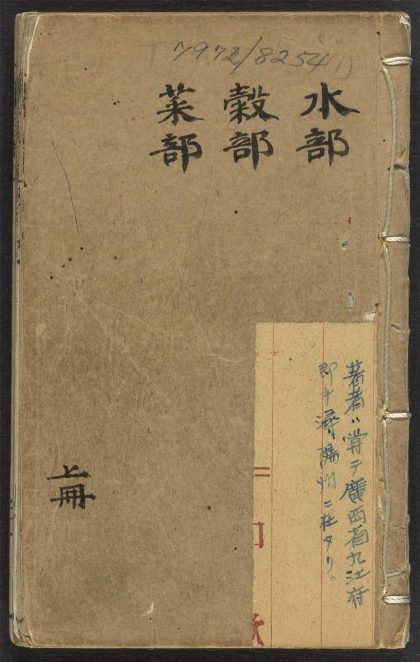 7972/8254(1)
水部
穀部
菜部
上冊
著者ハ嘗テ廣西省九江府
即チ潯陽州ニ在タリ。